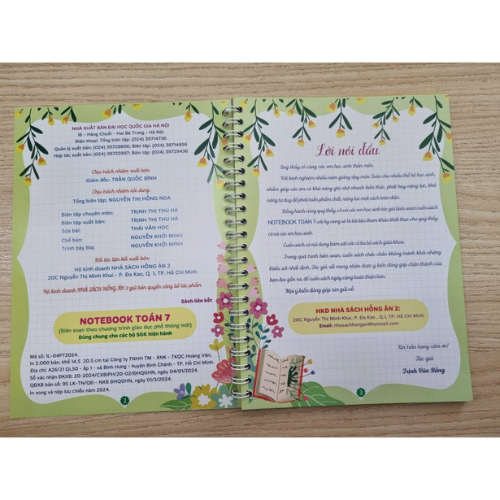 NHÀ XUẤT BẢN ĐẠI HỌC QUỐC GIA HÀ NỘI
16 - Hàng Chuối - Hai Bà Trưng - Hà Nội
Điện thoại: Tổng biên tập: (024) 39714736
Quản lý xuất bản: (024) 39728806; Biên tập: (024) 39714896
Hợp tác xuất bản: (024) 39725997; Biên tập: (024) 39729436
Chịu trách nhiệm xuất bản
Giám đốc: TRẦN QUỐC BÌNH
Chịu trách nhiệm nội dung
Tổng biên tập: NGUYỄN THỊ HỒNG NGA
Biên tập chuyên môn: TRỊNH THỊ THU HÀ
Biên tập xuất bản: TRỊNH THỊ THU HÀ
Sửa bài: THÁI VĂN HỌC
Chế bản: NGUYỄN KHỞI MINH
Trình bày bìa: NGUYỄN KHỞI MINH
Đối tác liên kết xuất bản
Hộ kinh doanh NHÀ SÁCH HỒNG ÂN 2
20C Nguyễn Thị Minh Khai, P. Đa Kao, Q. 1, TP. Hồ Chí Minh
Hộ kinh doanh NHÀ SÁCH HỒNG ÂN 2 giữ bản quyền công bố tác phẩm
Sách liên kết
NOTEBOOK TOÁN 7
(Biên soạn theo chương trình giáo dục phổ thông mới)
Dùng chung cho các bộ SGK hiện hành
Mã số: 1L-04PT2024
In 2.000 bản, khổ 14.5 20.5 cm tại Công ty TNHH TM - XNK - TKQC Hoàng Văn;
Địa chỉ: A26/21 QL50 - ấp 1 - xã Bình Hưng - huyện Bình Chánh - TP. Hồ Chí Minh
Số xác nhận ĐKXB: 20-2024/CXBIPH/20-02/ĐHQGHN, ngày 04/01/2024.
QĐXB bản số: 95 LK-TN/QĐ - NXB ĐHQGHN, ngày 01/3/2024.
In xong và nộp lưu chiểu năm 2024.
2
Lời nói đầu
Quý thầy cô cùng các em học sinh thân mến,
NOTEBOOK TOÁN 7
và các em học sinh.
Cuốn sách có nội dung bám sát với cả ba bộ sách giáo khoa.
HKD NHÀ SÁCH HỒNG ÂN 2:
20C Nguyễn Thị Minh Khai, P. Đa Kao, Q.1, TP. Hồ Chí Minh
Email: nhasachhongan@hotmail.com
Xin trân trọng cảm ơn!
Tác giả
Trịnh Văn Bằng
3